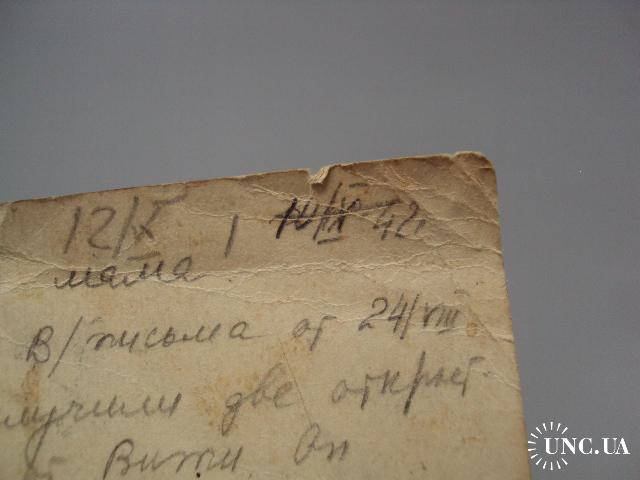 12/X
14/IX 42.
мама
В/письма от 24/VIII
лучили две открыт-
от Вити. Он
UNC.UA